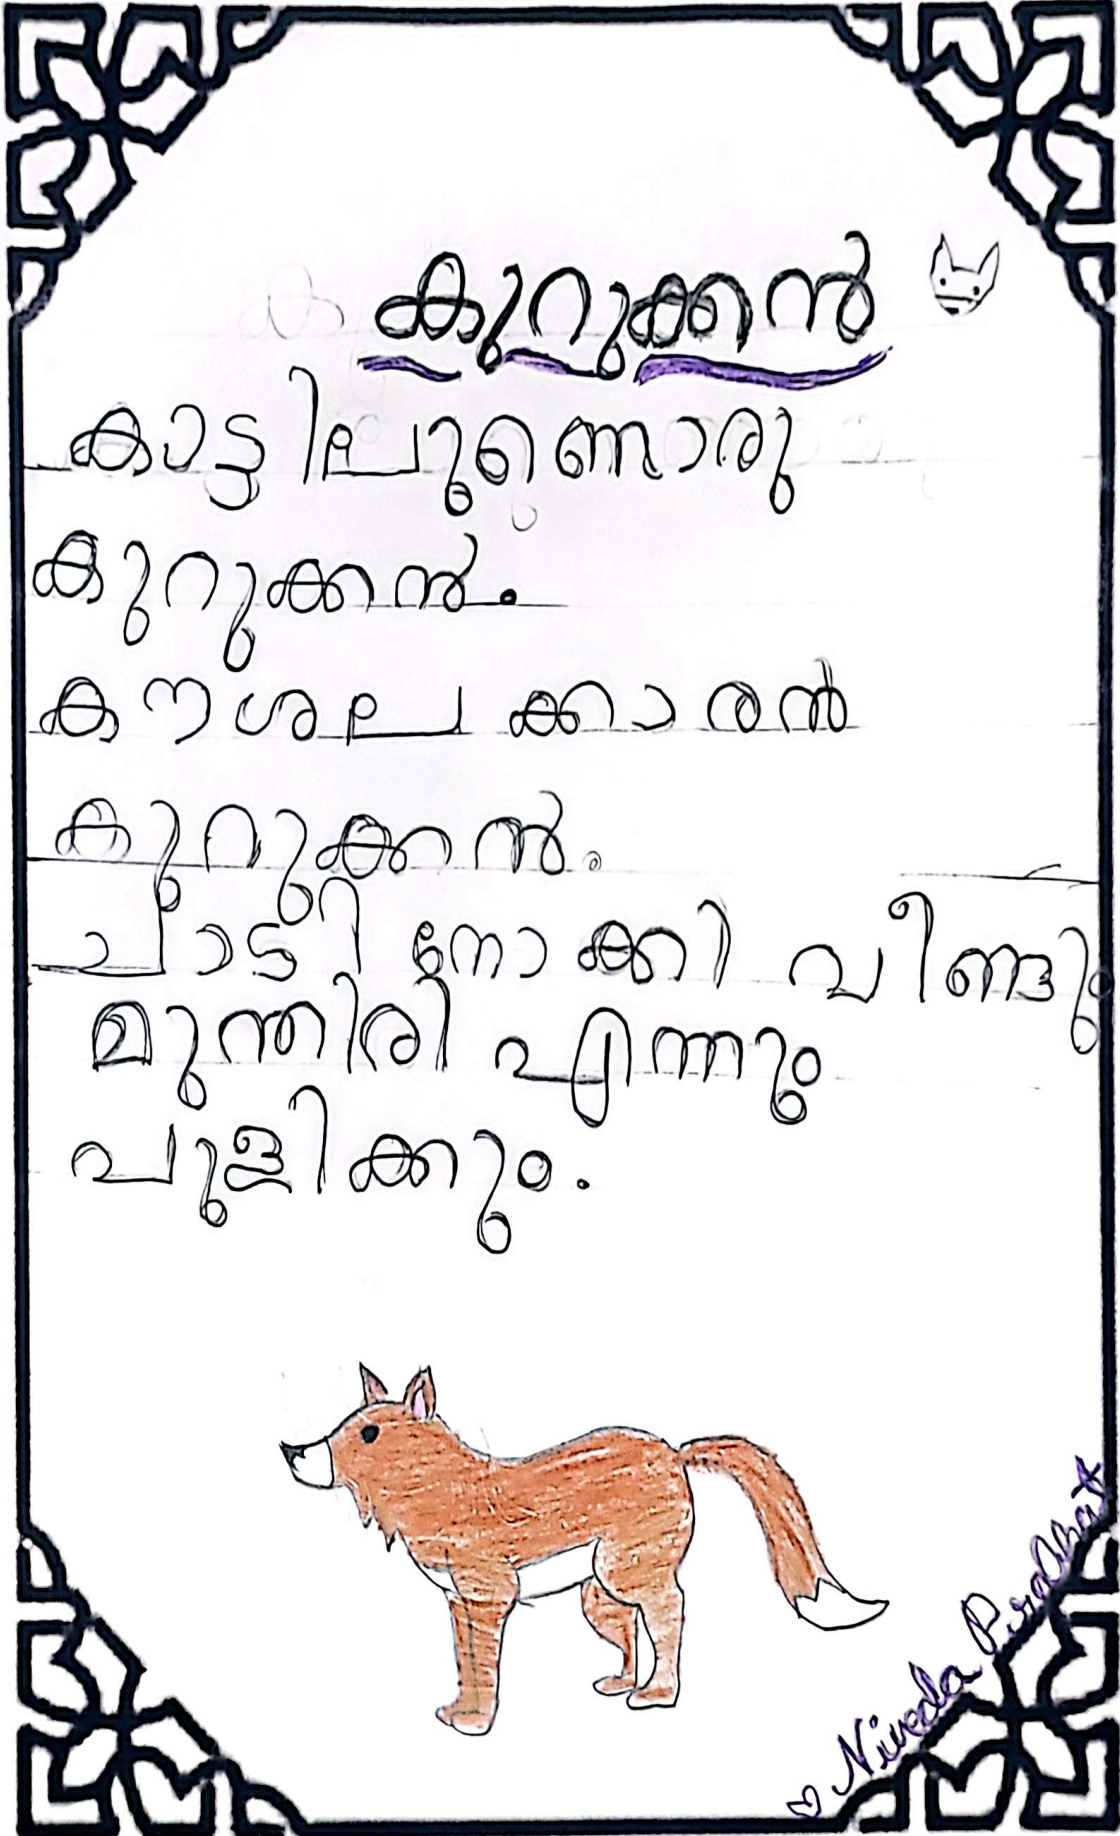 കുറുക്കൻ
കാട്ടിലുണ്ടൊരു
കുറുക്കൻ.
കൗശല ക്കാരൻ
കുറുക്കൻ.
ചാടി നോക്കി വീണ്ടും
മുന്തിരി എന്നും
പുളിക്കും.
Niveda Prabhat